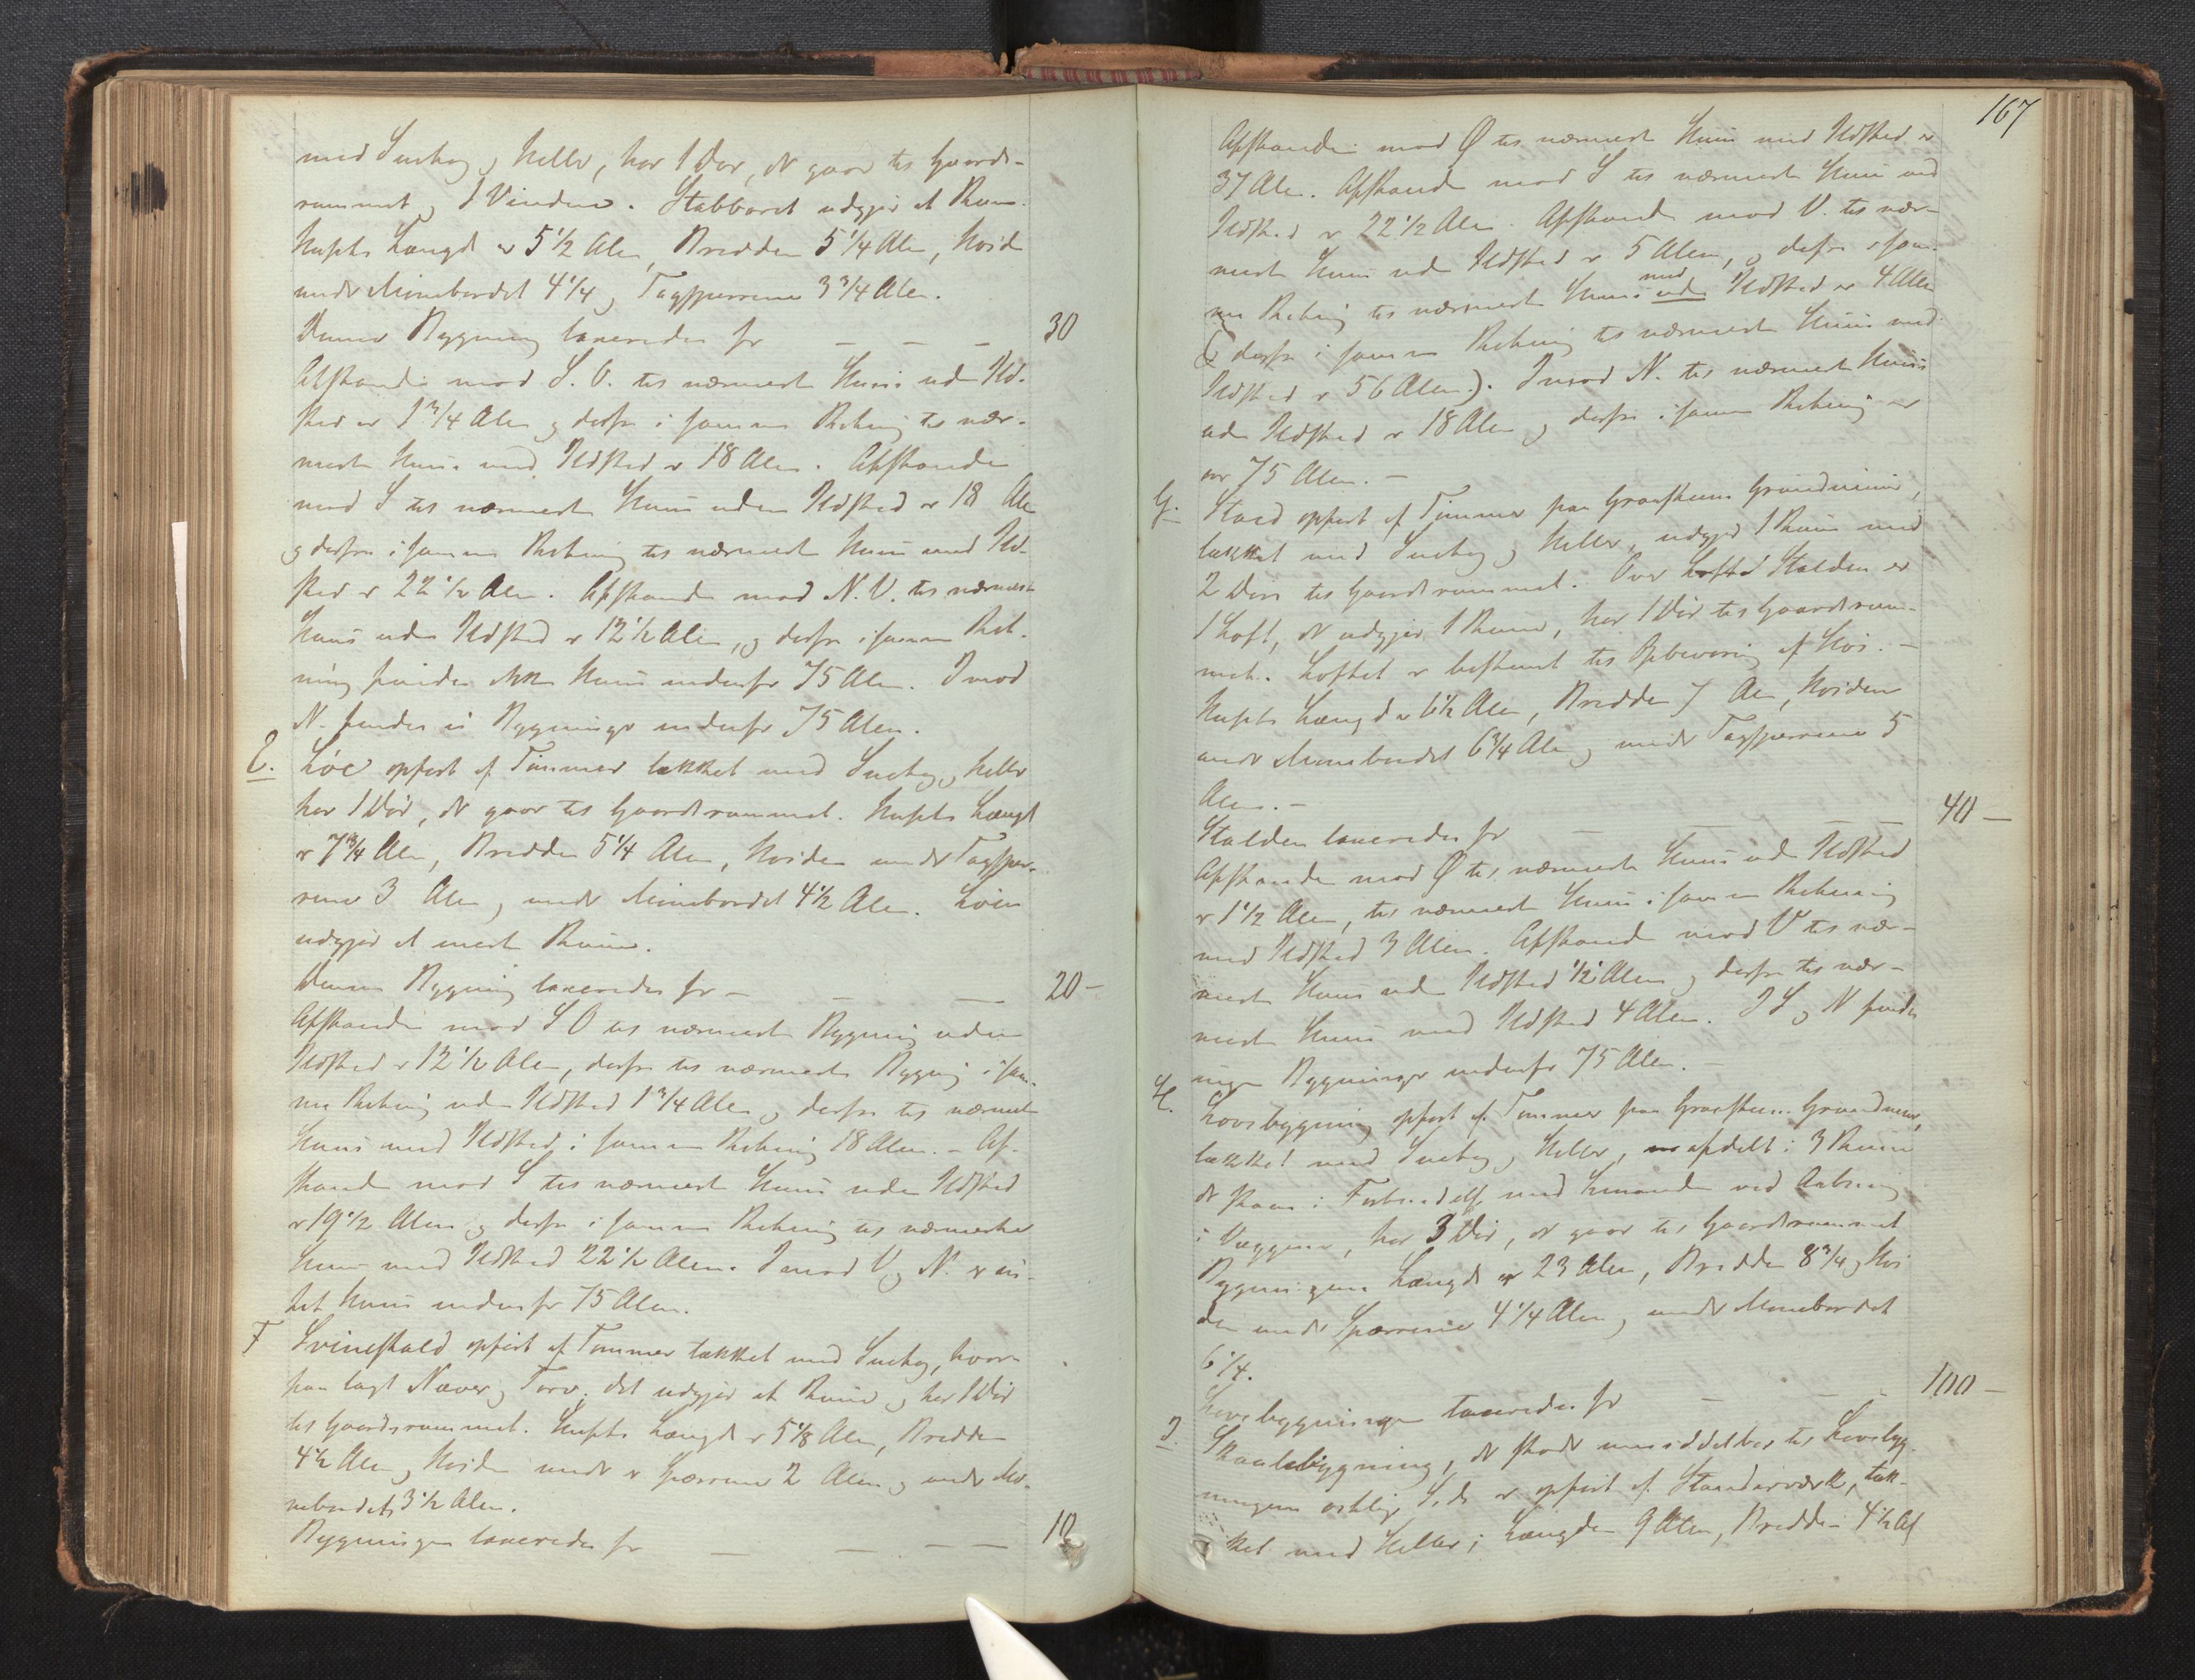 med Sutag og Heller, har 1 Dør, der gaar til Gaards-
rummet og 1 Vindue. Stabburet udgjør et Rum.
Husets Længde er 5 1/2 Alen, Bredden 5 1/4 Alen, Høide
under Mønebordet 4 1/4 og Tagsperrene 3 3/4 Alen.
Denne Bygning taxeredes for — — — 30
Afstanden mod S. O. til nærmeste Huus uden Ild-
sted er 1 3/4 Alen og derfra i samme Retning til nær-
meste Huus med Ildsted er 18 Alen. Afstanden
mod S til nærmeste Huus uden Ildsted er 18 Alen
og derfra i samme Retning til nærmeste Huus med Ild-
sted er 22 1/2 Alen. Afstanden mod N. V. til nærmeste
Huus uden Ildsted er 12 1/2 Alen, og derfra i samme Ret-
ning findes ikke Huus indenfor 75 Alen. Imod
N. findes ei Bygninger indenfor 75 Alen.
E. Løe opført af Tømmer tækket med Sutag og Heller
har 1 Dør, der gaar til Gaardsrummet. Husets Længde
er 7 3/4 Alen, Bredden 5 1/4 Alen, Høiden under Tagsper-
rene 3 Alen og under Mønebordet 4 1/2 Alen. Løen
udgjør et Rum.
Denne Bygning taxeredes for — — — 20 -
Afstanden mod S O til nærmeste Bygning uden
Ildsted er 12 1/2 Alen, derfra til nærmeste Bygning i sam-
me Retning uden Ildsted 1 3/4 Alen og derfra til nærmeste
Huus med Ildsted i samme Retning 18 Alen. - Af-
standen mod S til nærmeste Huus uden Ildsted
er 19 1/2 Alen og derfra i samme Retning til nærmeste
Huus med Ildsted 22 1/2 Alen. Imod V og N. er in-
tet Huus indenfor 75 Alen.
F Svinestald opført af Tømmer tækket med Sutag, hvor-
paa lagt Næver og Torv; det udgjør et Rum og har 1 Dør
til Gaardsrummet. Husets Længde er 5 1/8 Alen, Bredden
4 1/2 Alen og Høiden under Sperrene 2 Alen og under Mø-
nebordet 3 1/2 Alen.
Bygningen taxeredes for — — — — 10
167
Afstanden mod Ø til nærmeste Huus med Ildsted er
37 Alen. Afstanden mod S til nærmeste Huus med
Ildsted er 22 1/2 Alen. Afstanden mod V. til nær-
meste Huus uden Ildsted er 5 Alen, og derfra i sam-
me Retning til nærmeste Huus uden med Ildsted er 4 Alen
(og derfra i samme Retning til nærmeste Huus med
Ildsted er 56 Alen). Imod N. til nærmeste Huus
uden Ildsted er 18 Alen og derfra i samme Retning er
over 75 Alen. -
G. Stald opført af Tømmer paa Graasteens Grundmuur,
tækket med Sutag og Heller, udgjør 1 Rum med
2 Døre til Gaardsrummet. Over Stalden er
1 Loft, der udgjør 1 Rum, har 1 Dør til Gaardsrum-
met. Loftet er bestemt til Opbevaring af Høi. -
Husets Længde er 6 1/2 Alen, Bredden 7 Alen, Høiden
under Mønebordet 6 3/4 Alen og under Tagsperrene 5
Alen. -
Stalden taxeredes for — — — — 40 —
Afstanden mod Ø til nærmeste Huus uden Ildsted
er 1 1/2 Alen, til nærmeste Huus i samme Retning
med Ildsted 3 Alen. Afstanden mod V til nær-
meste Huus uden Ildsted 1/2 Alen og derfra til nær-
meste Huus med Ildsted 4 Alen. I S og N findes
ingen Bygninger indenfor 75 Alen. -
H. Løebygning opført af Tømmer paa Graasteens Grundmuur,
tækket med Sutag og Heller, afdelt i 3 Rum
der staa i Forbindelse med hinanden ved Aabning
i Væggene, har 3 Dør, der gaar til Gaardsrummet
Bygningens Længde er 23 Alen, Bredden 8 3/4 og Høi
den under Sperrene 4 1/4 Alen og under Mønebordet
6 1/4.
Løebygningen taxeredes for — — - 100 —
I. Skaalebygning, der støder umiddelbar til Løebyg-
ningens østlige Side er opført af Standerværk, tæk-
ket med Heller; Længden 9 Alen, Bredden 4 1/2 Al